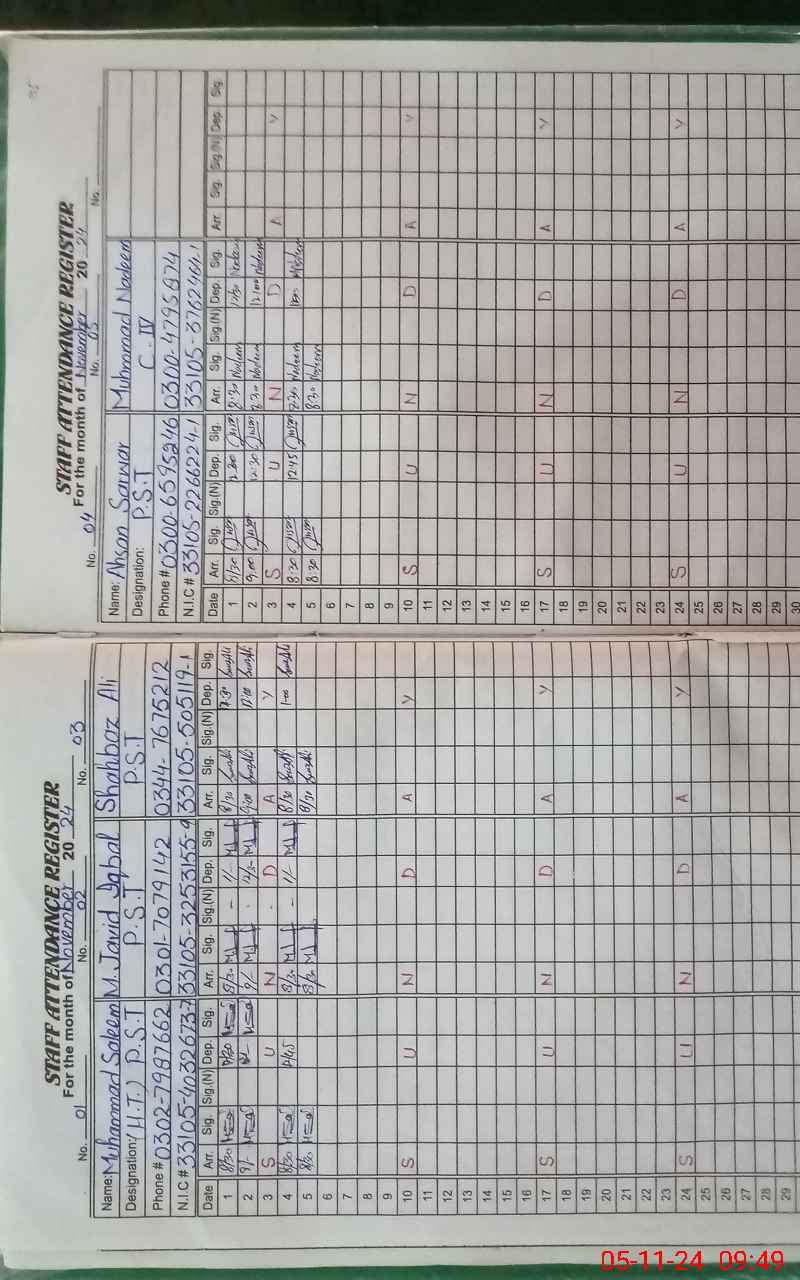 STAFF ATTENDANCE REGISTER
For the month of November 20 24
No. 01 No. 02 No. 03
Name: Muhammad Saleem M. Javid Iqbal Shahbaz Ali
Designation: (H.T.) P.S.T P.S.T P.S.T
Phone # 0302-7987662 0301-7079142 0344-7675212
N.I.C # 33105-4032673-7 33105-3253155-9 33105-505119-1
Date Arr. Sig. Sig.(N) Dep. Sig. Arr. Sig. Sig.(N) Dep. Sig. Arr. Sig. Sig.(N) Dep. Sig.
1 8/30 8/30 - 1/- 8/30
2 9/- 9/- 12/- 9:00 12:00
3 S U N D A Y
4 8/30 8/30 - 1/- 8/30 1-00
5 8/30 8/30 8/30
6
7
8
9
10 S U N D A Y
11
12
13
14
15
16
17 S U N D A Y
18
19
20
21
22
23
24 S U N D A Y
25
26
27
28
29
STAFF ATTENDANCE REGISTER
For the month of November 20 24
No. 04 No. 05 No.
Name: Ahsan Sarwar Muhammad Nadeem
Designation: P.S.T C. IV
Phone # 0300-6595246 0300-4795974
N.I.C # 33105-2266224-1 33105-3762464-1
Date Arr. Sig. Sig.(N) Dep. Sig. Arr. Sig. Sig.(N) Dep. Sig. Arr. Sig. Sig.(N) Dep. Sig.
1 8/30 8:30 Nadeem Nadeem
2 9:00 12:30 Nadeem 12:00 Nadeem
3 S U N D A Y
4 8:30 12:45 Nadeem Nadeem
5 8:30 8:30 Nadeem
6
7
8
9
10 S U N D A Y
11
12
13
14
15
16
17 S U N D A Y
18
19
20
21
22
23
24 S U N D A Y
25
26
27
28
29
30
05-11-24 09:49